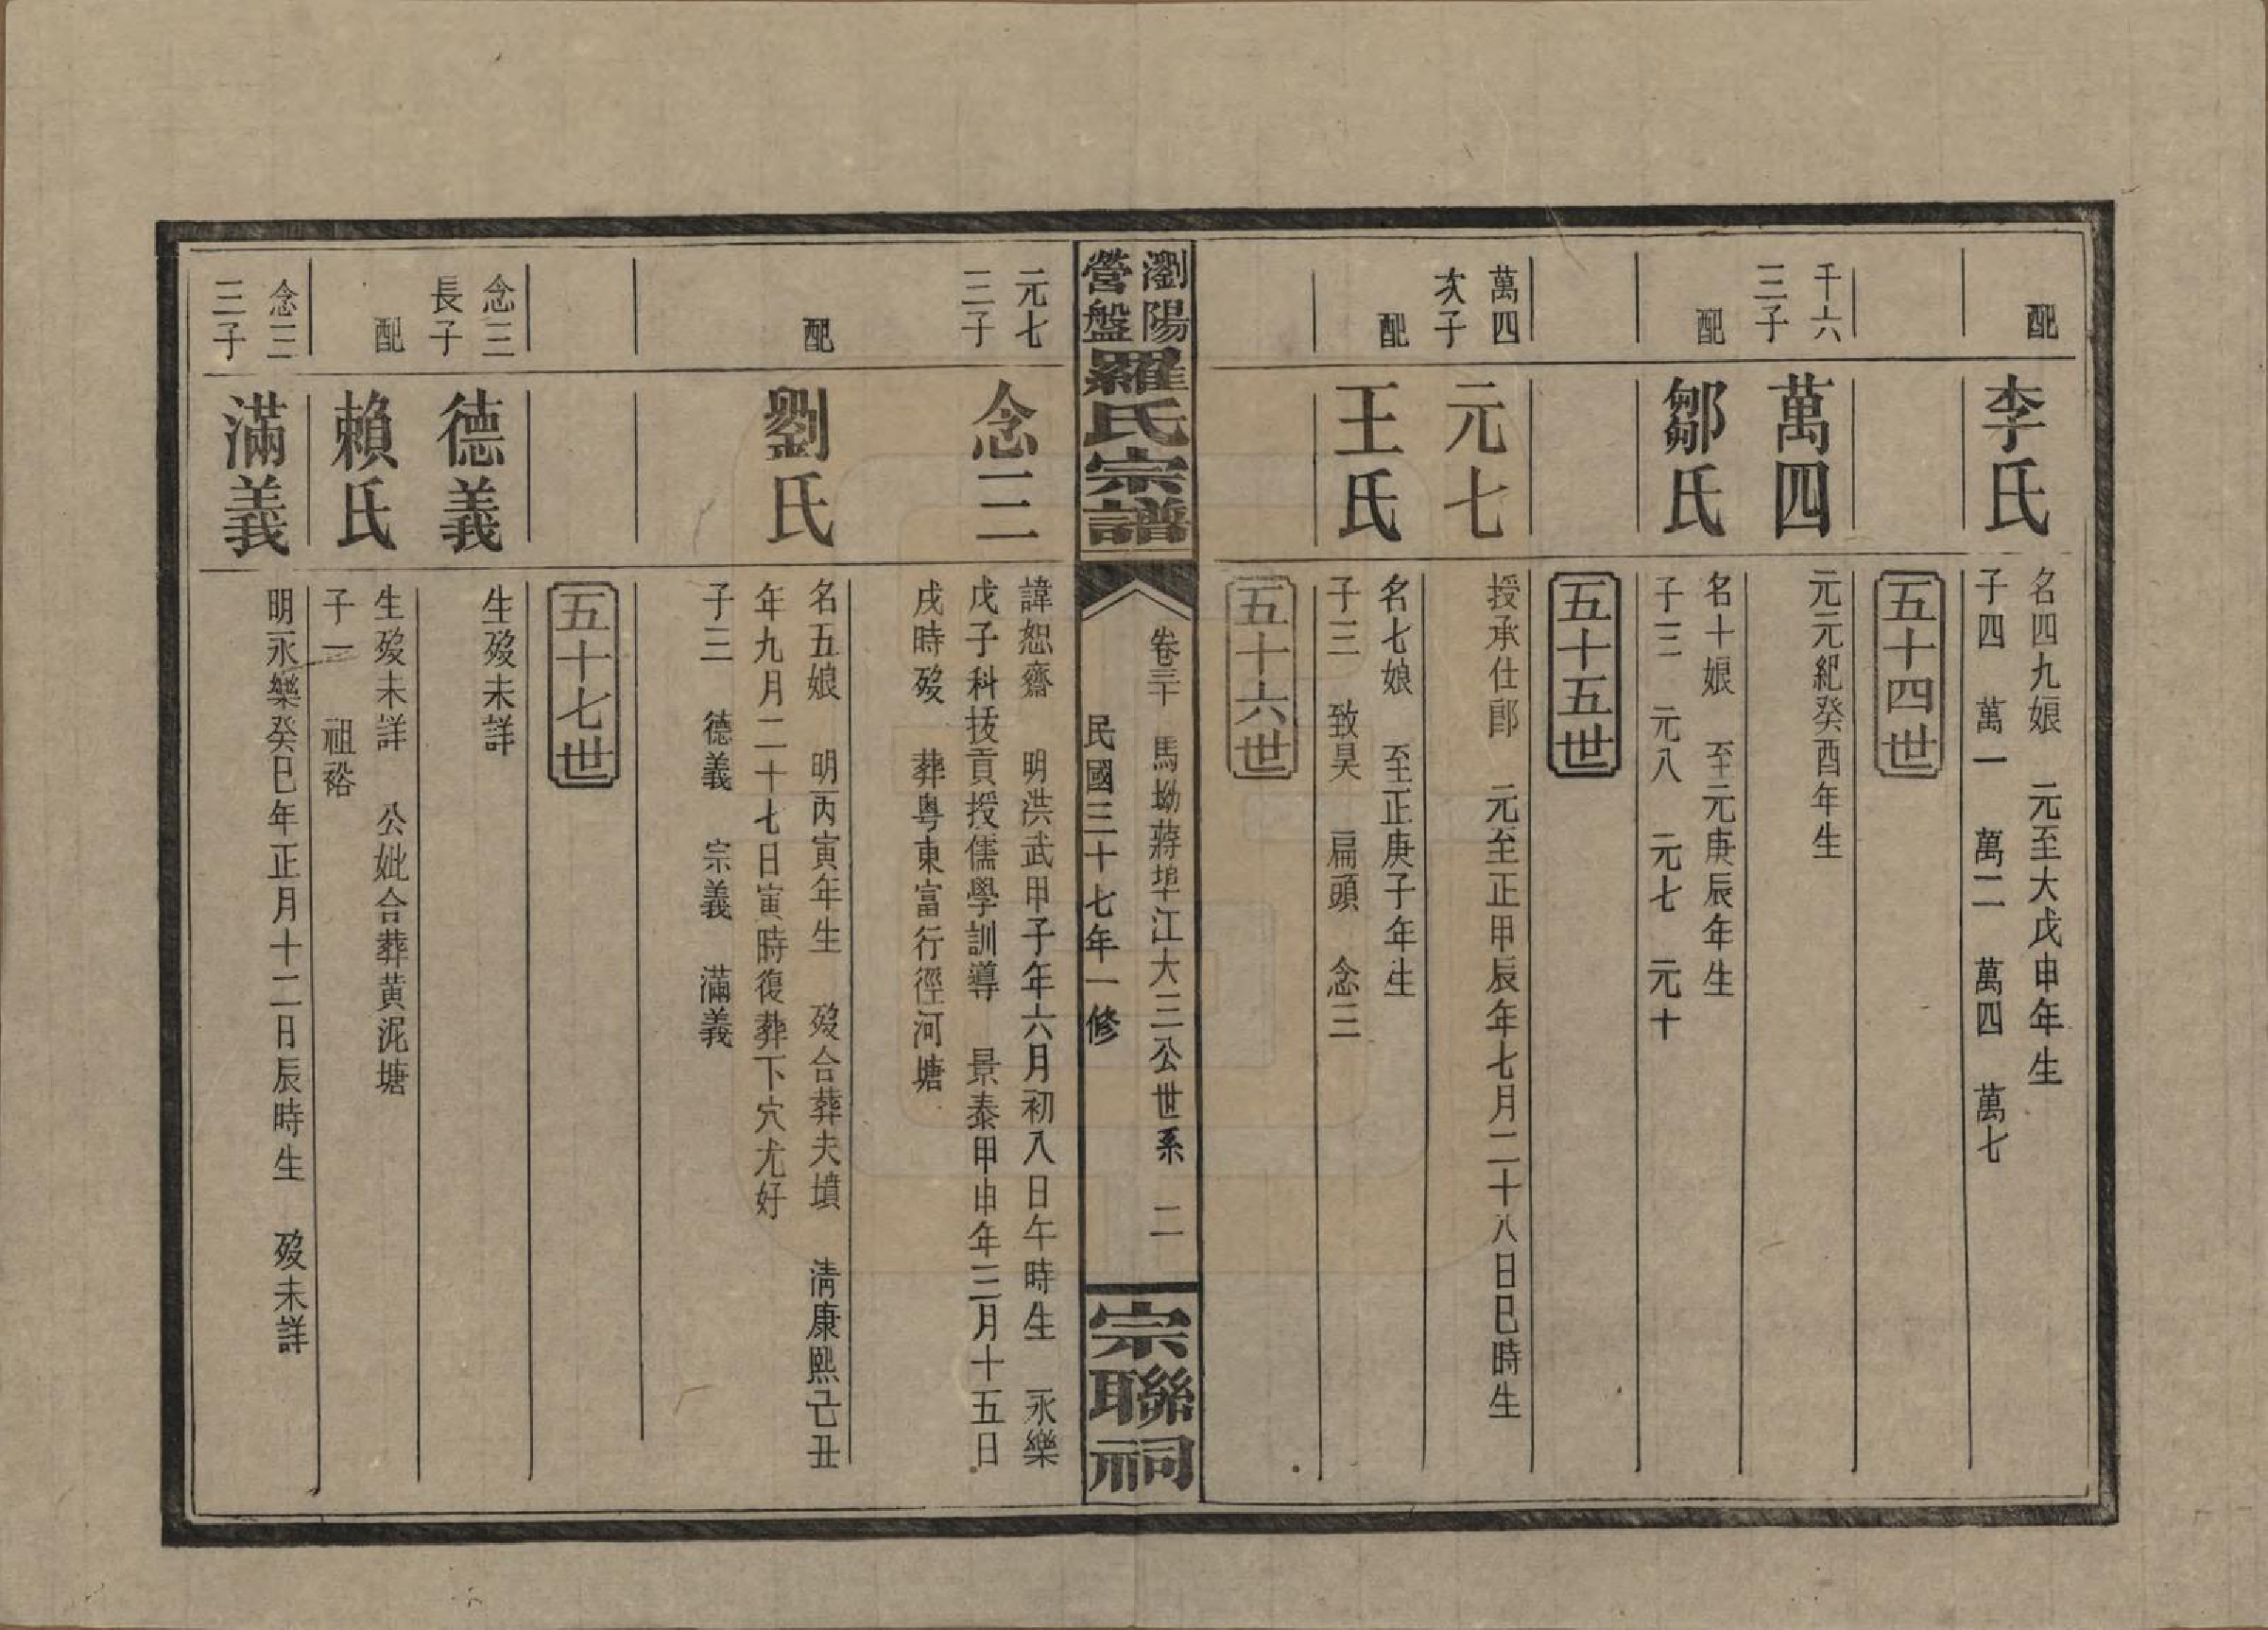 配
李氏
名四九娘　元至大戊申年生
子四　萬一　萬二　萬四　萬七
五十四世
千六
三子
萬四
元元紀癸酉年生
配
鄒氏
名十娘　至元庚辰年生
子三　元八　元七　元十
五十五世
萬四
次子
元七
授承仕郎　元至正甲辰年七月二十八日巳時生
配
王氏
名七娘　至正庚子年生
子三　致昊　扁頭　念三
五十六世
瀏陽
營盤
羅氏宗譜
卷三十　馬坳蔣埠江大三公世系　二
民國三十七年一修
宗聯祠
元七
三子
念三
諱恕齋　明洪武甲子年六月初八日午時生　永樂
戊子科拔貢授儒學訓導　景泰甲申年三月十五日
戌時歿　葬粵東富行徑河塘
配
劉氏
名五娘　明丙寅年生　歿合葬夫墳　清康熙己丑
年九月二十七日寅時復葬下穴尤好
子三　德義　宗義　滿義
五十七世
念三
長子
德義
生歿未詳
配
賴氏
生歿未詳　公妣合葬黃泥塘
子一　祖裕
念三
三子
滿義
明永樂癸巳年正月十二日辰時生　歿未詳